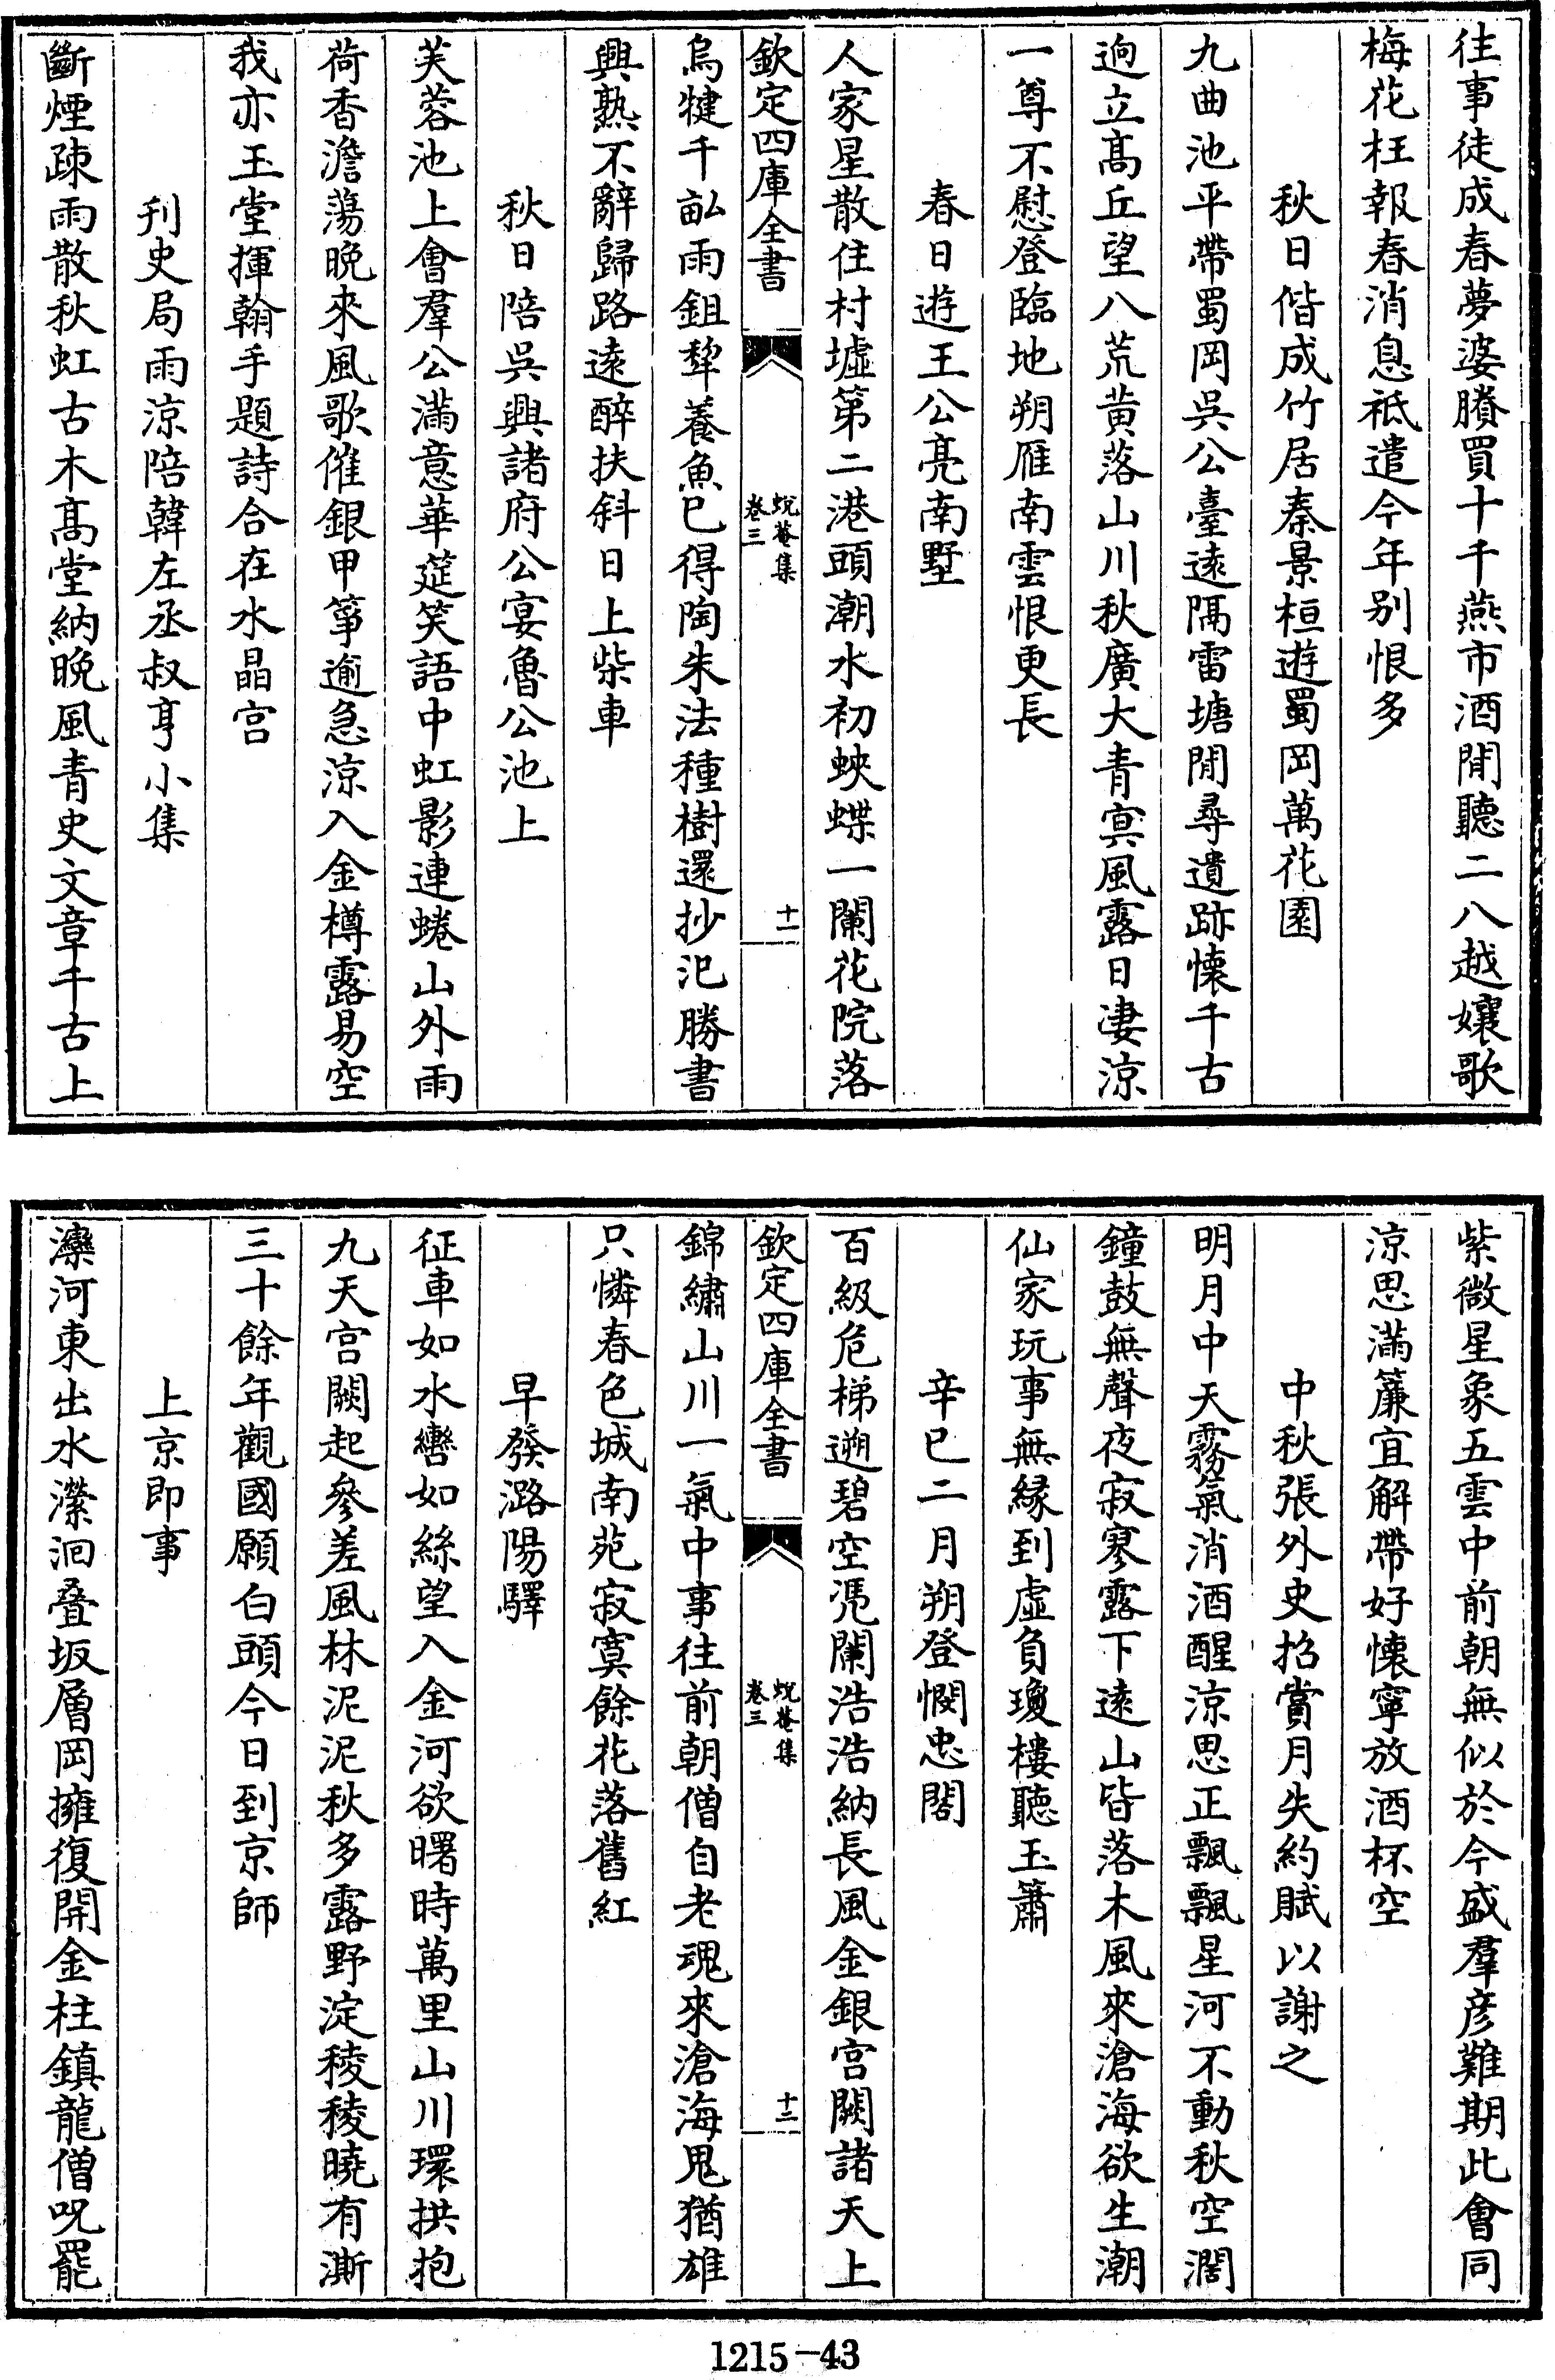 往事徒成春夢婆賸買十千燕市酒閒聽二八越孃歌
梅花枉報春消息祗遣今年别恨多
秋日偕成竹居秦景桓遊蜀岡萬花園
九曲池平帶蜀岡吳公臺遠隔雷塘閒尋遺跡懐千古
逈立髙丘望八荒黄落山川秋廣大青㝠風露日淒涼
一尊不慰登臨地朔雁南雲恨更長
春日遊王公亮南墅
人家星散住村墟第二港頭潮水初蛺蝶一闌花院落
欽定四庫全書
蛻菴集
卷三
十一
烏犍千畝雨鉏犂養魚已得陶朱法種樹還抄氾勝書
興熟不辭歸路逺醉扶斜日上柴車
秋日陪吳興諸府公宴魯公池上
芙蓉池上會羣公滿意華筵笑語中虹影連蜷山外雨
荷香澹蕩晚來風歌催銀甲箏逾急涼入金樽露易空
我亦玉堂揮翰手題詩合在水晶宫
刋史局雨涼陪韓左丞叔亨小集
斷煙疎雨散秋虹古木髙堂納晚風青史文章千古上
紫微星象五雲中前朝無似於今盛羣彦難期此會同
涼思滿簾宜解帶好懐寧放酒杯空
中秋張外史招賞月失約賦以謝之
明月中天霧氣消酒醒涼思正飄飄星河不動秋空濶
鐘鼓無聲夜寂寥露下逺山皆落木風來滄海欲生潮
仙家玩事無縁到虚負瓊樓聽玉簫
辛巳二月朔登憫忠閣
百級危梯遡碧空凭闌浩浩納長風金銀宫闕諸天上
欽定四庫全書
蛻菴集
卷三
十二
錦繡山川一氣中事往前朝僧自老魂來滄海鬼猶雄
只憐春色城南苑寂寞餘花落舊紅
早發潞陽驛
征車如水轡如絲望入金河欲曙時萬里山川環拱抱
九天宫闕起參差風林泥泥秋多露野淀稜稜曉有澌
三十餘年觀國願白頭今日到京師
上京即事
灤河東出水瀠洄疊坂層岡擁復開金柱鎮龍僧呪罷
1215-43